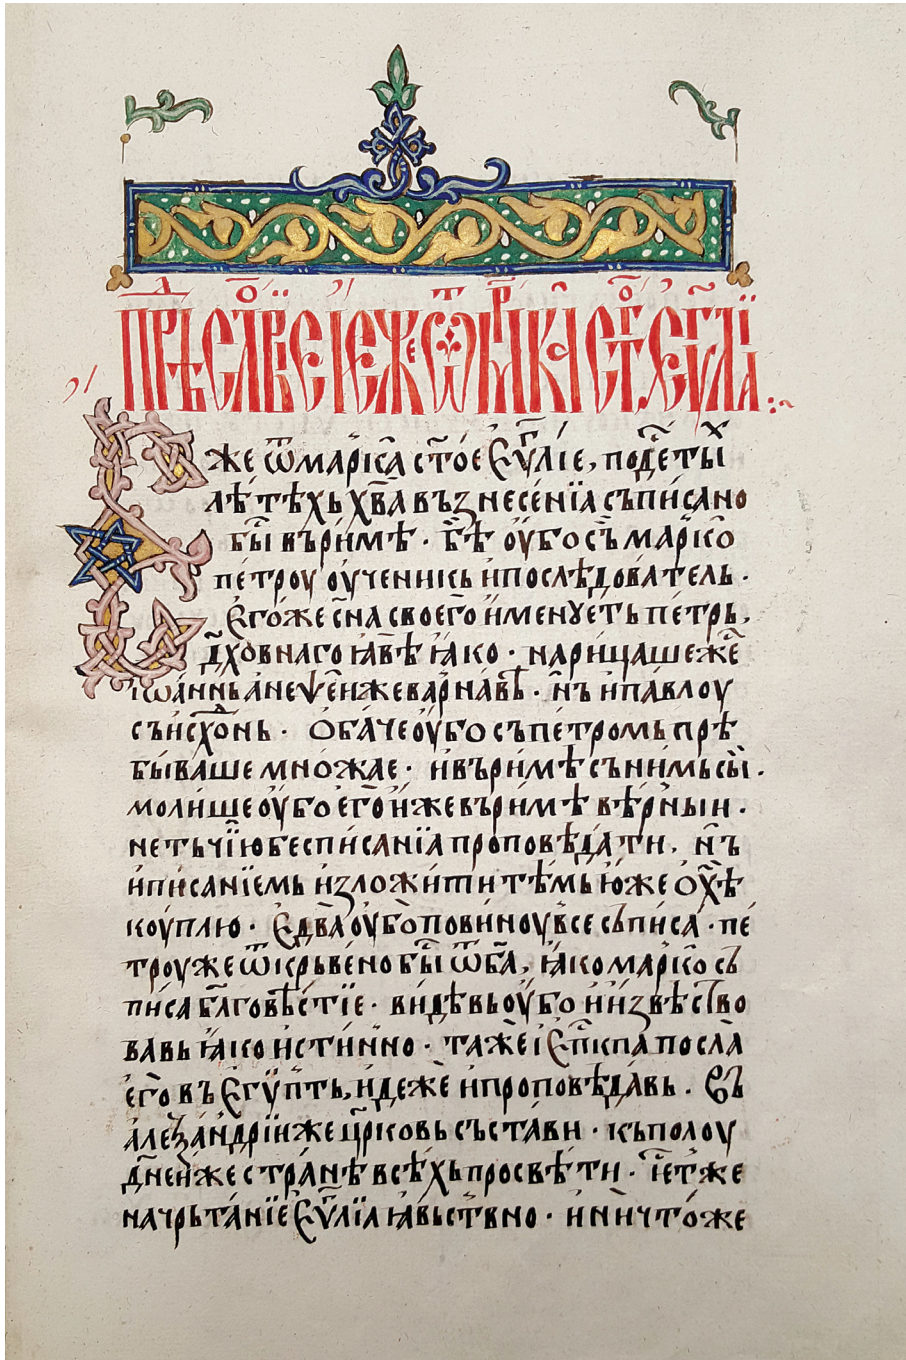 Прѣⷣсло́вїе иже ѿ маⷬ҇ка ст҃го еѵⷢ҇лїа
Еже ѿ маⷬ҇ка ст҃о́е Еѵⷢ҇лїе, по де́сетыⷯ
лѣ́тѣхь хв҃а възнесе́нїа съпи́сано
бы̑ въ ри́мѣ · бѣ̀ ѹ̓бо съ̀ ма́рко
пе́троу оу҆чени́кь и҆ послѣ́дователь ·
Е҆го́же сн҃а своего̀ и҆менѹ́еть пе́трь,
дх҃о́внаго ꙗ҆́вѣ ꙗ҆́ко · нарица́ше же
і҆ѡа́ннь а҆неѱе́и же варна́вѣ · нъ̀ и҆ па́влоу
съи҆схо́дⷩ҇ь · О҆ба́че оу҆́бо съ пе́тромь прѣ
быва́ше мно́жае · и҆ въ ри́мѣ съ ни́мь сы̀ ·
моли́ше оу҆́бо е҆го̀ и҆́же въ ри́мѣ вѣ́рныи ·
не тъчї́ю бесписа́нїа проповѣ́дати · нъ̀
и҆ писа́нїемь и҆зложи́ти тѣ́мь ю҆́же о҆ хѣ҃
коу́плю · Е҆два̀ оу҆́бо повиноу́в се съписа̀ · пе
троу же ѿкръве́но бы̑ ѿ ба҃, ꙗ҆́ко ма́рко съ
писа̀ бл҃говѣ́стїе · ви́дѣвь оу҆́бо и҆ и҆звѣ́ство
вавь ꙗ҆́ко и҆́стинно · та́же і҆ е҆пⷭ҇кпа посла̀
е҆го̀ въ Е҆гѵ́пть, и҆дѣ́же и҆ проповѣ́давь · Въ
а҆леѯа́ндрїи же цр҃ковь съста́ви · къ полоу
дн҃еи же стра́нѣ всѣ́хь просвѣтѝ · і҆е́т же
начръта́нїе Еѵⷢ҇лїа ꙗ҆́вьствно · и҆ ничто́же